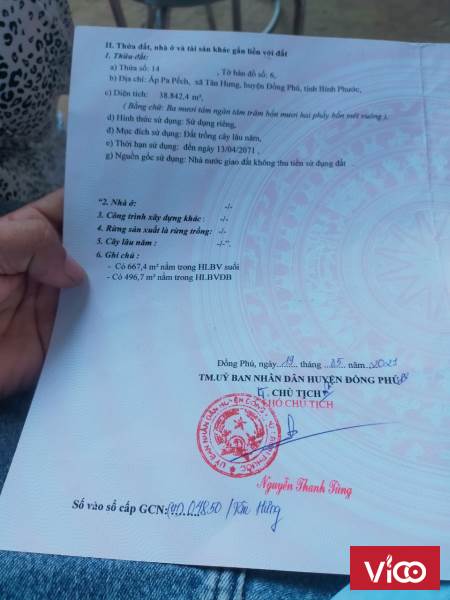 II. Thửa đất, nhà ở và tài sản khác gắn liền với đất
1. Thửa đất:
a) Thửa số: 14 , Tờ bản đồ số: 6,
b) Địa chỉ: Ấp Pa Pếch, xã Tân Hưng, huyện Đồng Phú, tỉnh Bình Phước,
c) Diện tích: 38.842,4 m²,
( Bằng chữ: Ba mươi tám ngàn tám trăm bốn mươi hai phẩy bốn mét vuông ),
d) Hình thức sử dụng: Sử dụng riêng,
đ) Mục đích sử dụng: Đất trồng cây lâu năm,
e) Thời hạn sử dụng: đến ngày 13/04/2071 ,
g) Nguồn gốc sử dụng: Nhà nước giao đất không thu tiền sử dụng đất
"2. Nhà ở: -/-
3. Công trình xây dựng khác : -/-
4. Rừng sản xuất là rừng trồng: -/-
5. Cây lâu năm : -/-".
6. Ghi chú :
- Có 667,4 m² nằm trong HLBV suối
- Có 496,7 m² nằm trong HLBVĐB
Đồng Phú, ngày 19 tháng 05 năm 2021
TM.UỶ BAN NHÂN DÂN HUYỆN ĐỒNG PHÚ
CHỦ TỊCH
PHÓ CHỦ TỊCH
Nguyễn Thanh Tùng
Số vào sổ cấp GCN: /Tân Hưng
ViCO